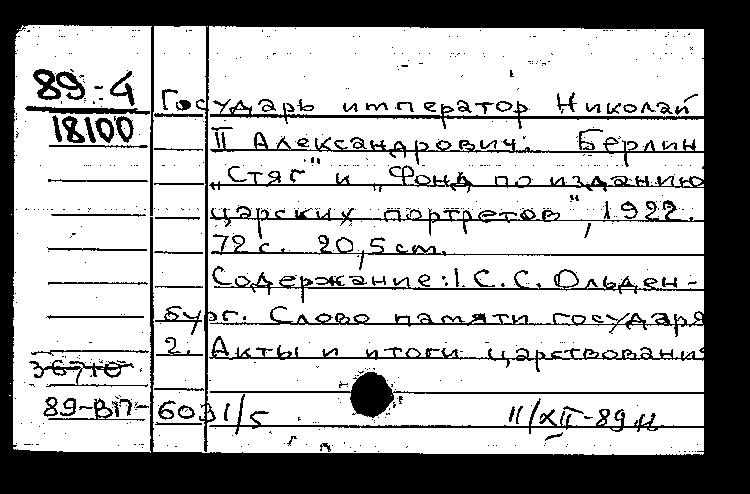 89-4 Государь император Николай
18100 II Александрович. Берлин
„Стяг" и „Фонд по изданию
царских портретов", 1922.
72 с. 20,5 cm.
Содержание: 1. С.С. Ольден-
бург. Слово памяти государя
2. Акты и итоги царствования
36710
89-ВП-6031/5 11/XII-89